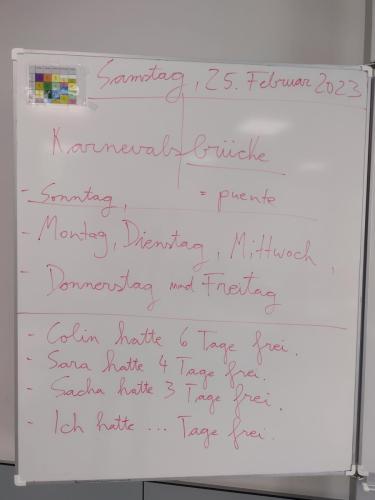 Samstag, 25. Februar 2023
Karnevalsbrücke
- Sonntag, = puente
- Montag, Dienstag, Mittwoch,
- Donnerstag und Freitag
- Colin hatte 6 Tage frei.
- Sara hatte 4 Tage frei.
- Sacha hatte 3 Tage frei.
- Ich hatte ... Tage frei.